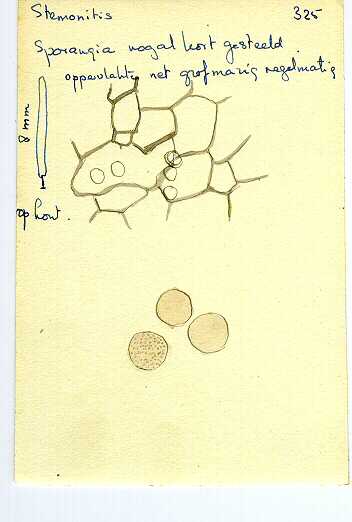 Stemonitis 325
Sporangia nogal kort gesteeld.
oppervlakte net grofmazig regelmatig
8 mm
op hout.